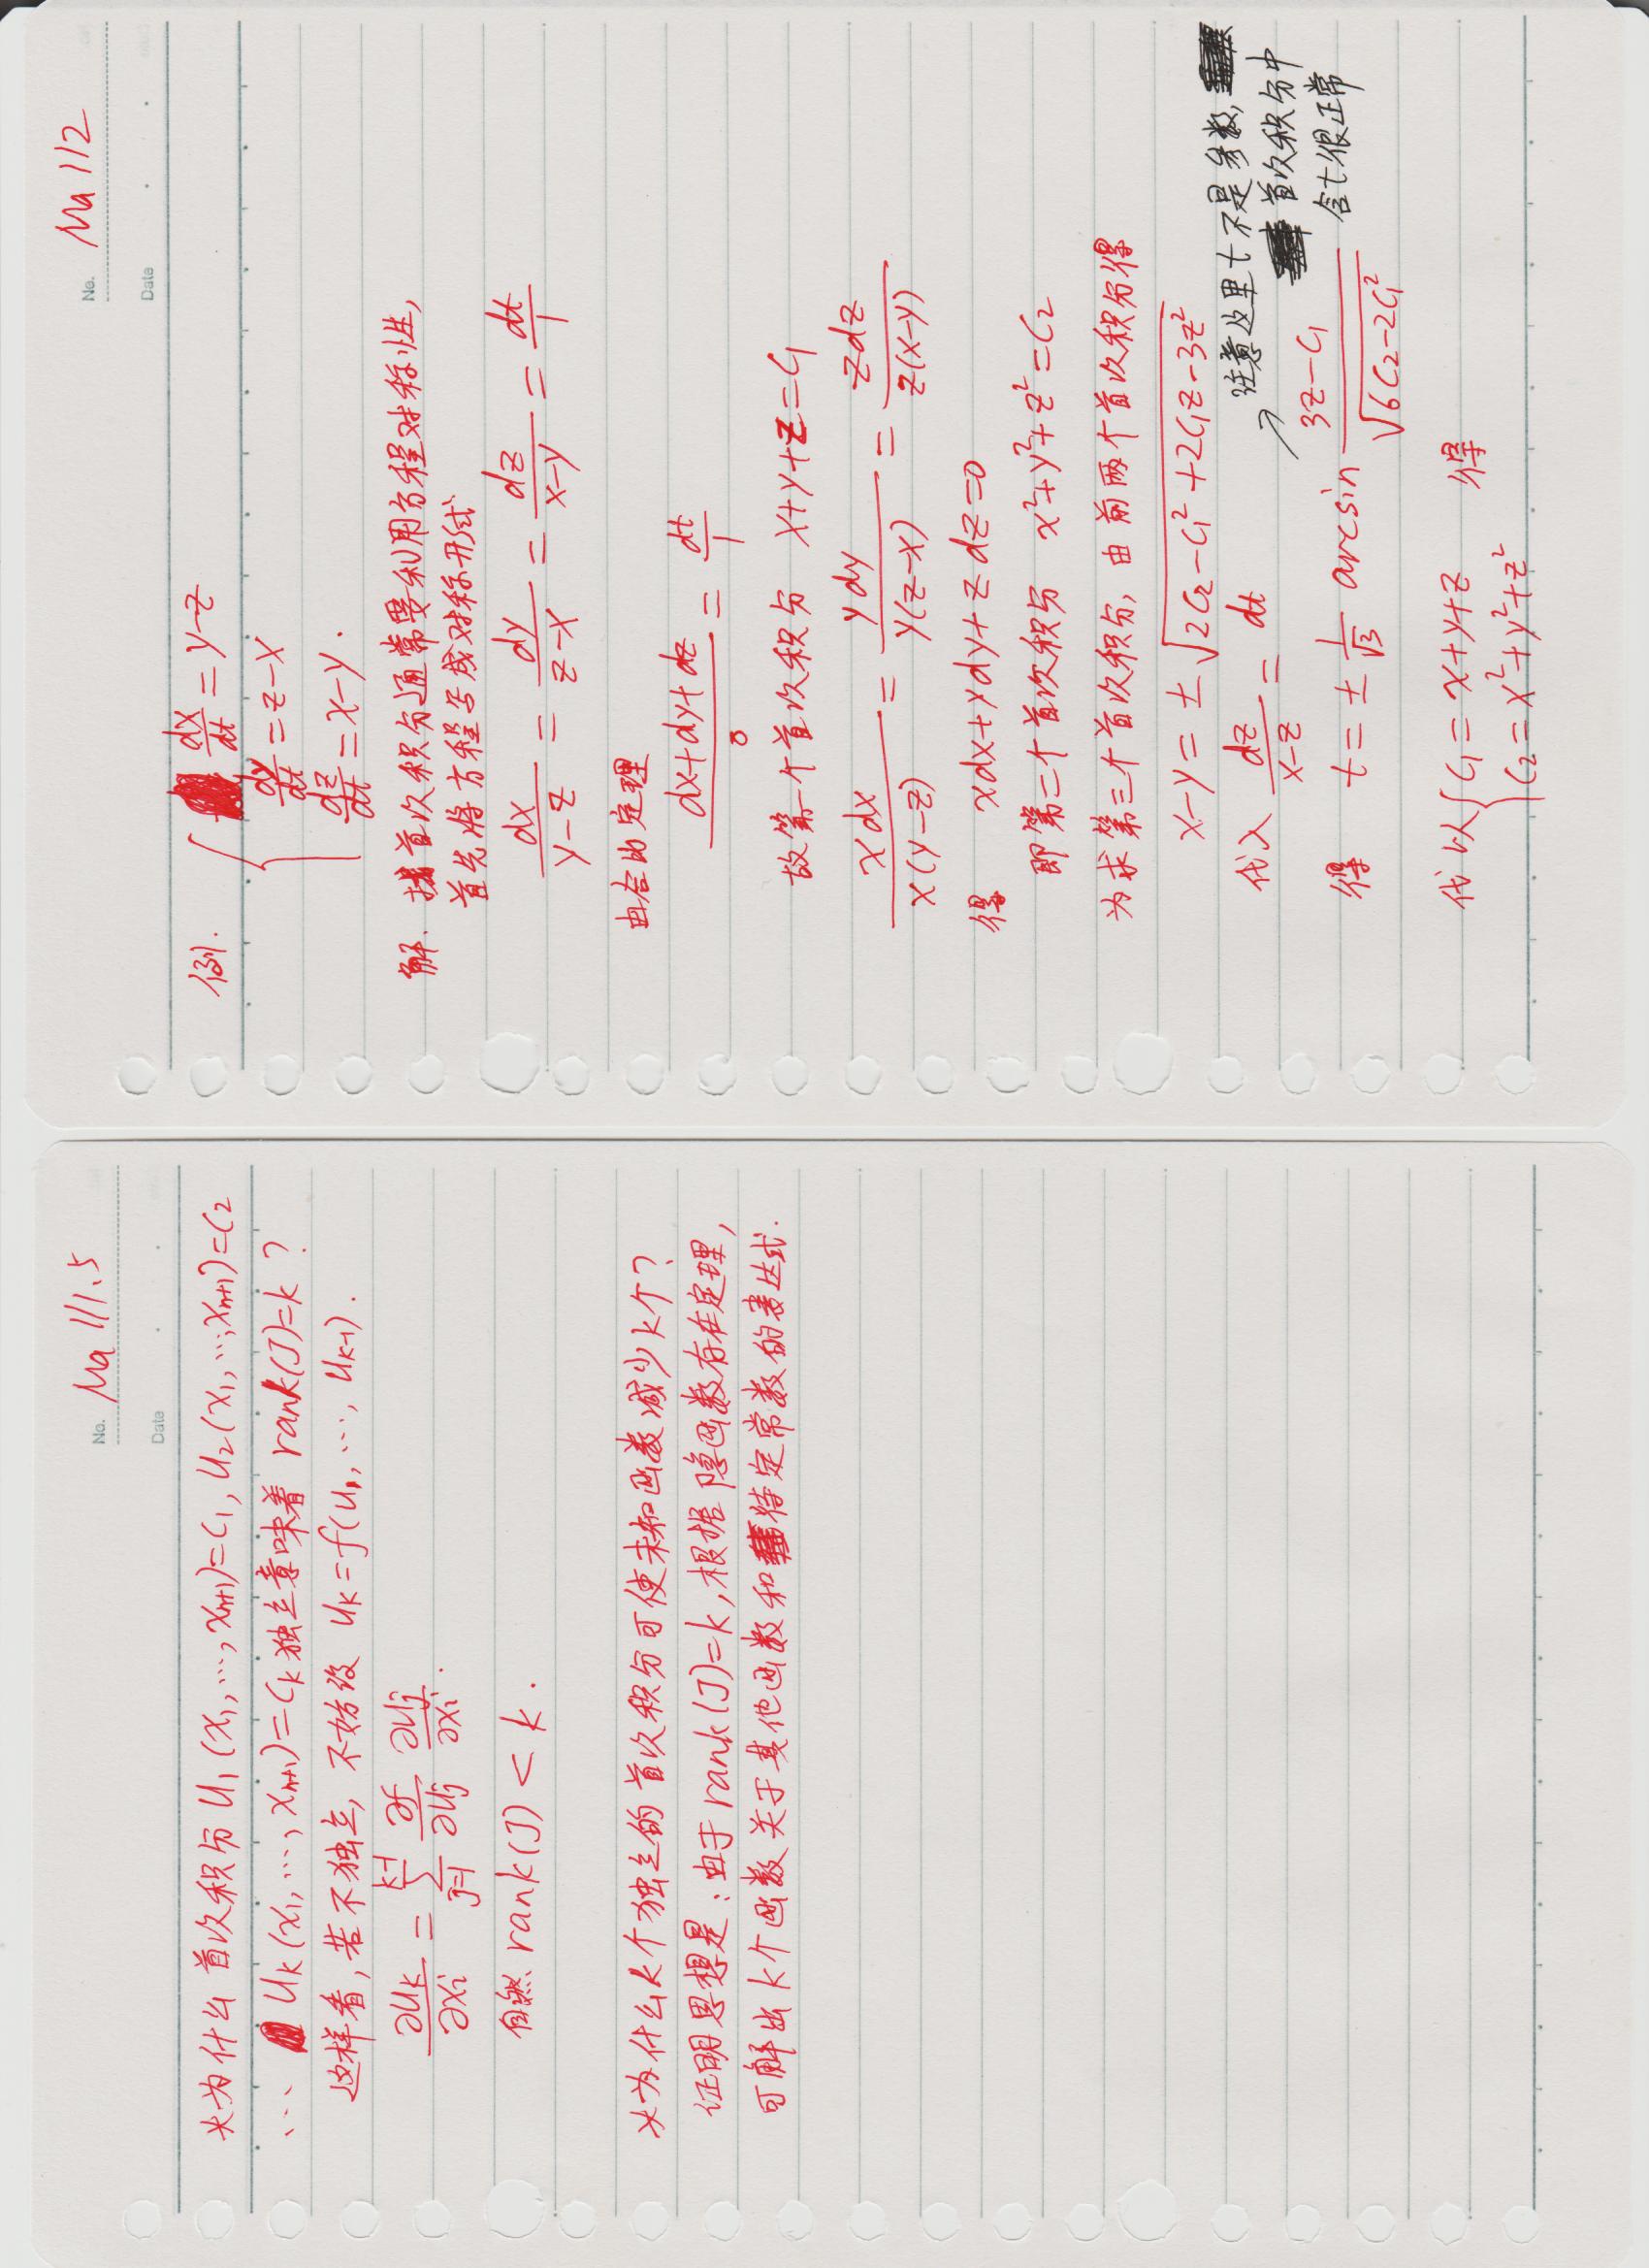 No. Ma 111.5
Date
*为什么首次积分 U₁(x₁,…,xₙ₊₁)=C₁, U₂(x₁,…,xₙ₊₁)=C₂
… Uₖ(x₁,…,xₙ₊₁)=Cₖ独立意味着 rank(J)=k ?
这样看,若不独立,不妨设 Uₖ=f(U₁,…,Uₖ₋₁).
∂Uₖ/∂xᵢ = Σ_{j=1}^{k-1} ∂f/∂Uⱼ ∂Uⱼ/∂xᵢ.
自然 rank(J) < k.
*为什么k个独立的首次积分可使未知函数减少k个?
证明思想是:由于 rank(J)=k,根据隐函数存在定理,
可解出k个函数关于其他函数和待定常数的表达式.
No. Ma 112
Date
例. { dx/dt = y-z
dy/dt = z-x
dz/dt = x-y.
解. 找首次积分通常要利用方程对称性,
首先将方程写成对称形式
dx/(y-z) = dy/(z-x) = dz/(x-y) = dt/1
由合比定理
(dx+dy+dz)/0 = dt/1
故第一个首次积分 x+y+z=C₁
xdx/(x(y-z)) = ydy/(y(z-x)) = zdz/(z(x-y))
得 xdx+ydy+zdz=0
即第二个首次积分 x²+y²+z²=C₂
为求第三个首次积分,由前两个首次积分得
x-y = ±√(2C₂-C₁²+2C₁z-3z²)
代入 dz/(x-z) = dt
注意这里t不是参数,
首次积分中
含t很正常
得 t = ± 1/√3 arcsin (3z-C₁)/√(6C₂-2C₁²)
代以{ C₁ = x+y+z 得
C₂ = x²+y²+z²